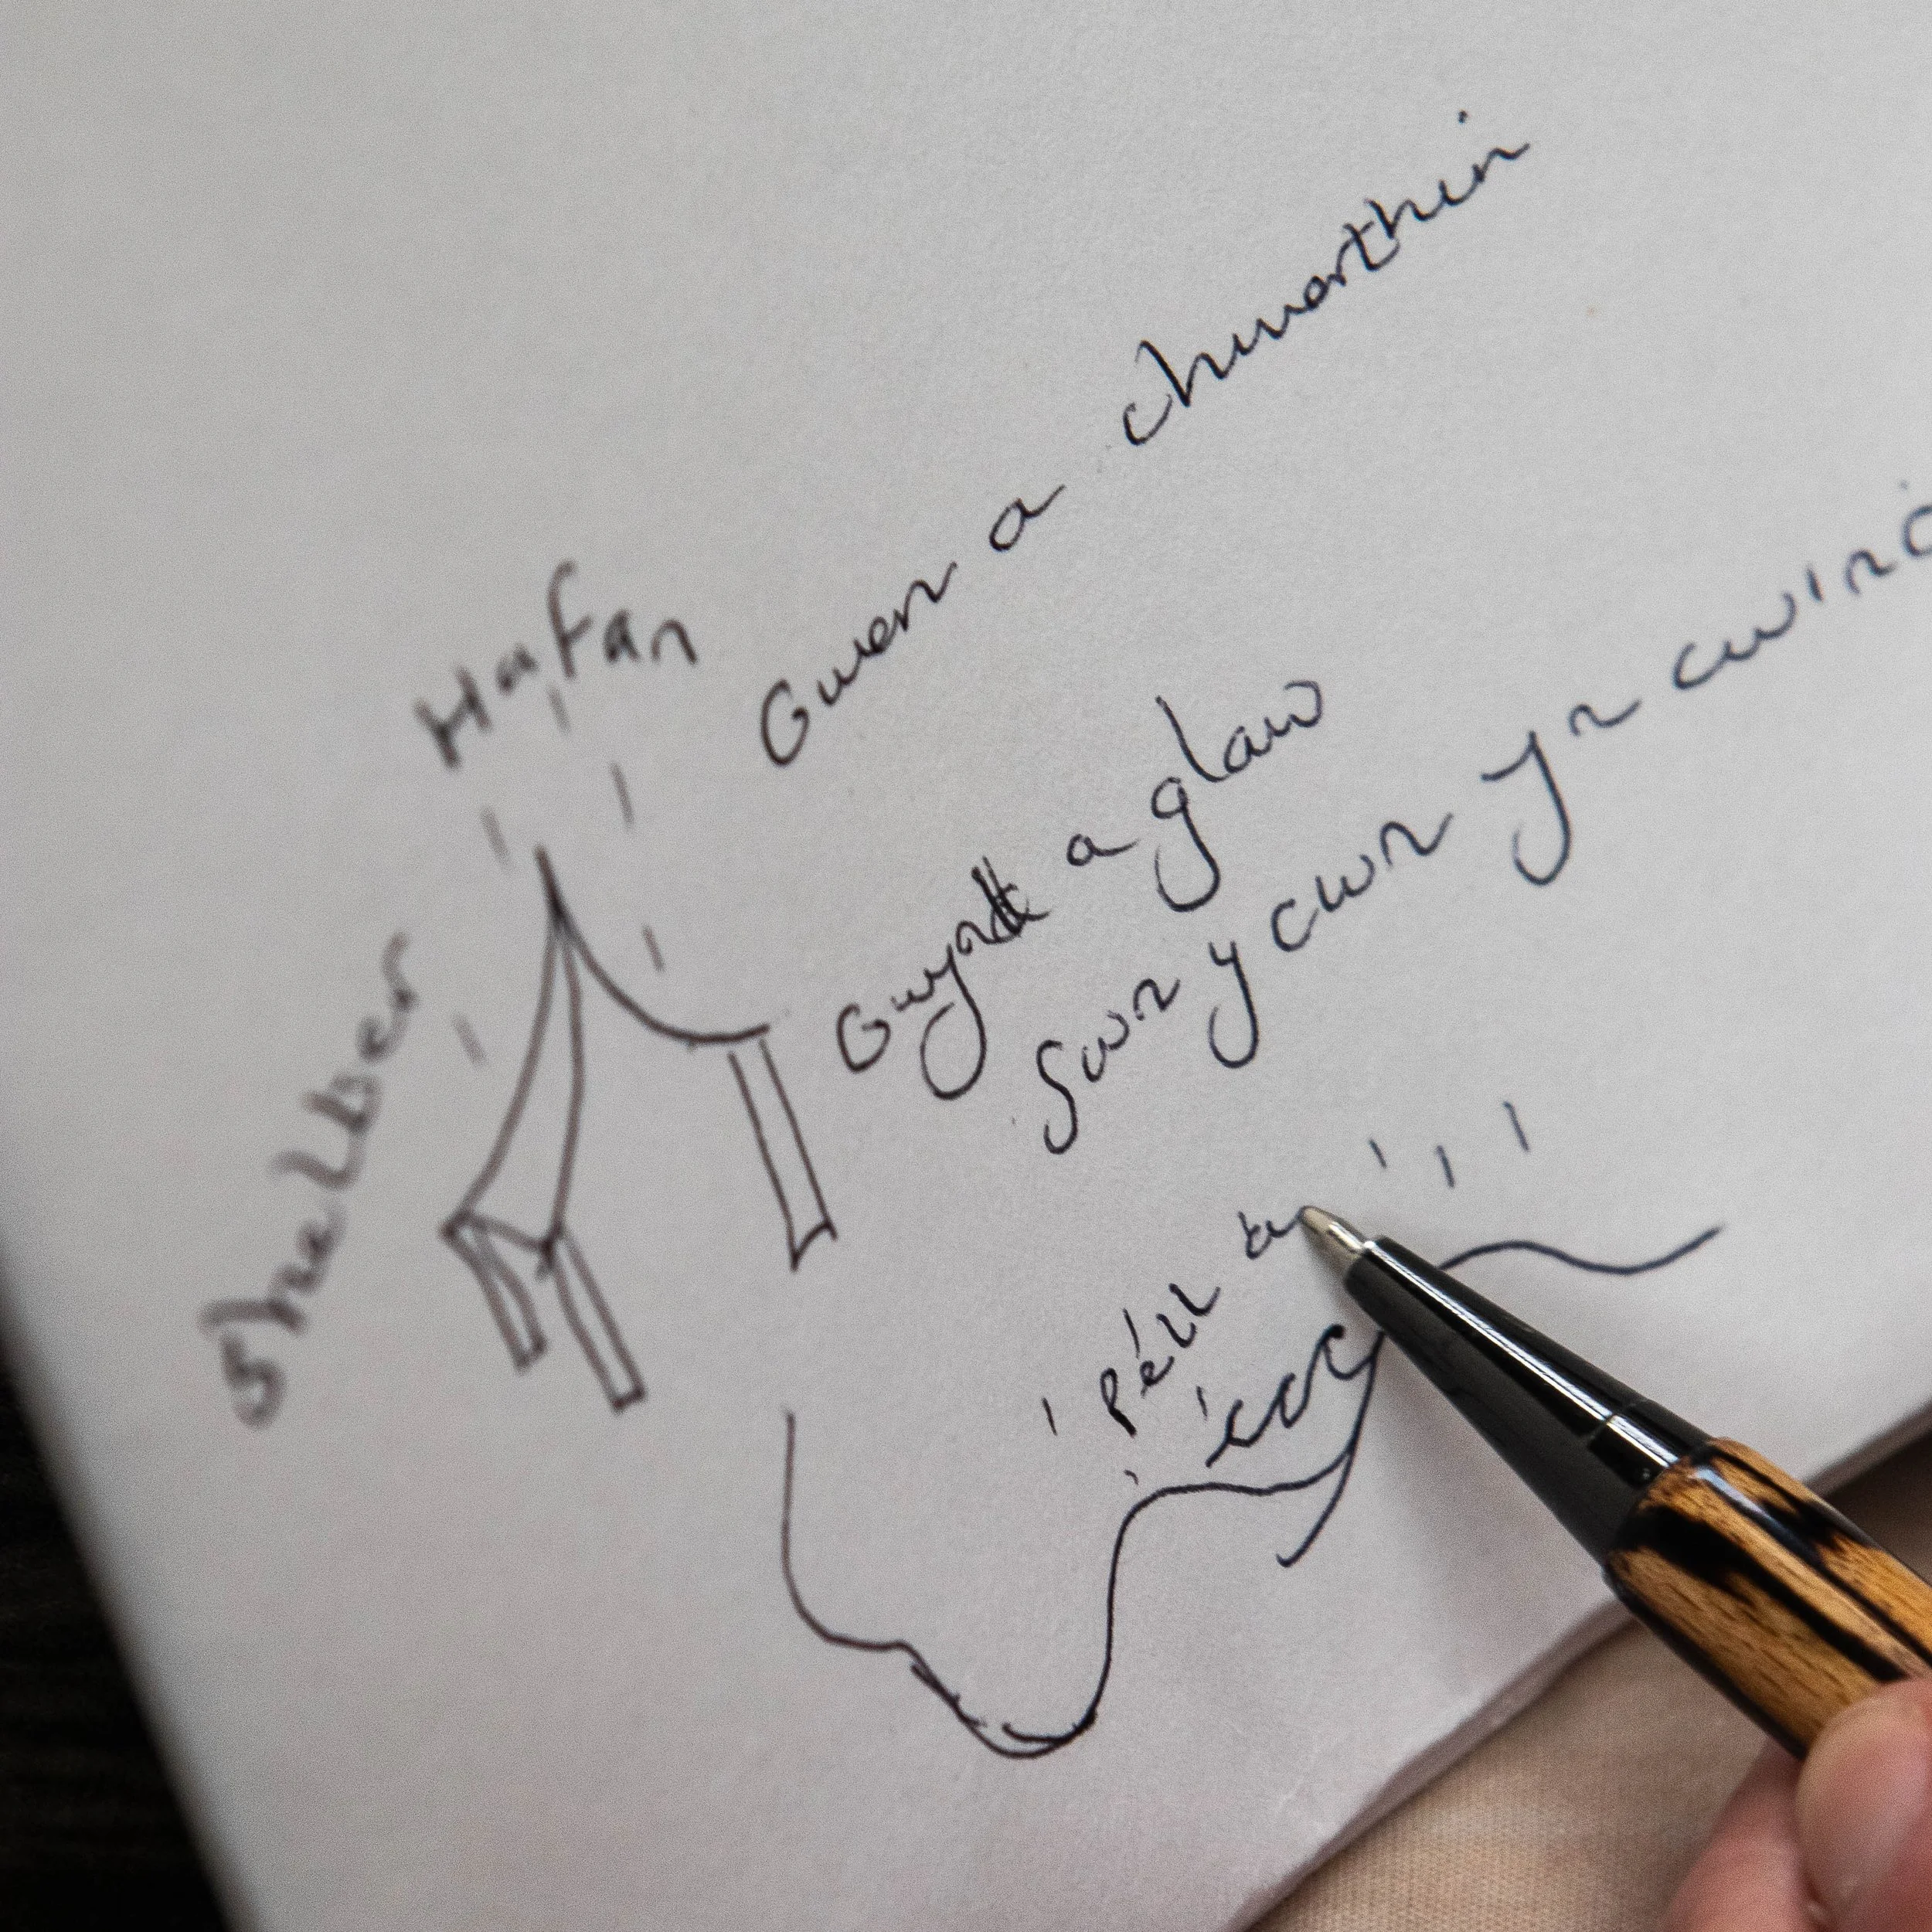 Hafan
Shelter
Gwen a chwerthin
Gwynt a glaw
Swn y cwn yn cwino
Pell